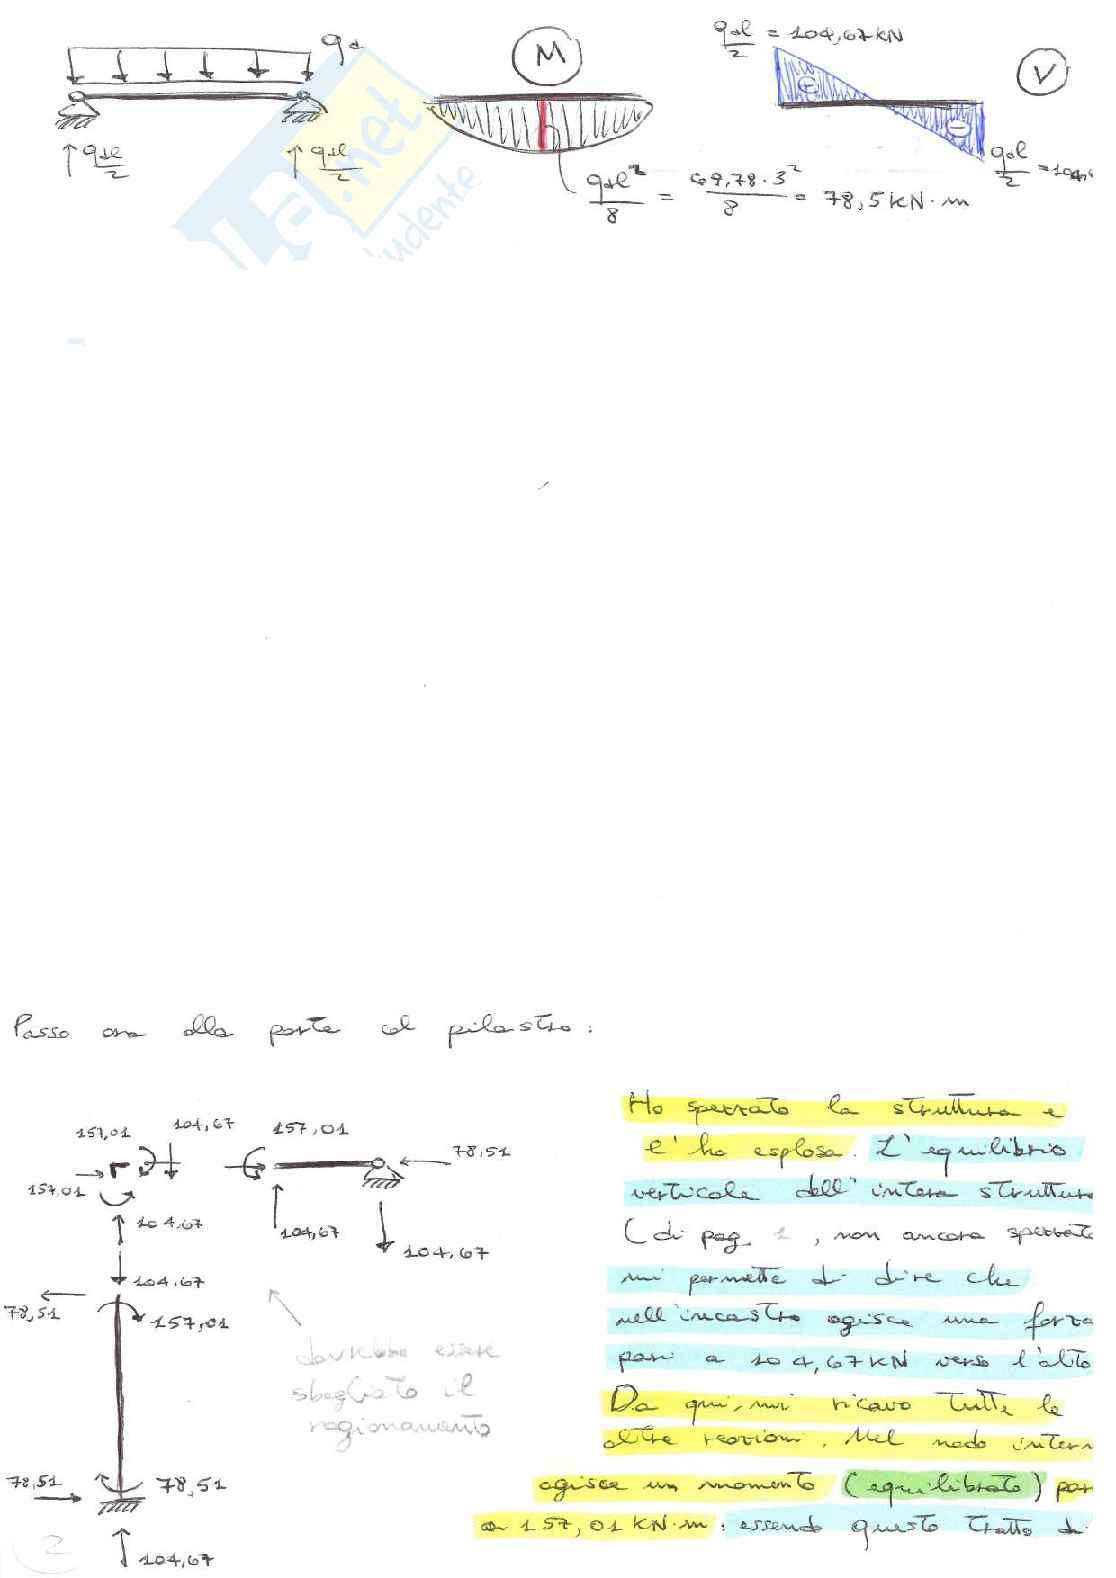 qd
M
qdl/2 = 104,67 kN
V
qdl/2
qdl/2
qdl²/8 = 69,78·3²/8 = 78,5 kN·m
qdl/2 = 104,
.net
Passo ora alla parte col pilastro:
Ho spezzato la struttura e
l'ho esplosa. L'equilibrio
verticale dell'intera struttura
(di pag. 1, non ancora spezzata
mi permette di dire che
nell'incastro agisce una forza
pari a 104,67 kN verso l'alto
Da qui, mi ricavo tutte le
altre reazioni. Nel nodo intern
agisce un momento (equilibrato) par
a 157,01 kN·m: essendo questo tratto di
157,01
101,67
157,01
78,51
157,01
104,67
104,67
104,67
104,67
78,51
157,01
dovrebbe essere
sbagliato il
ragionamento
78,51
78,51
104,67
2